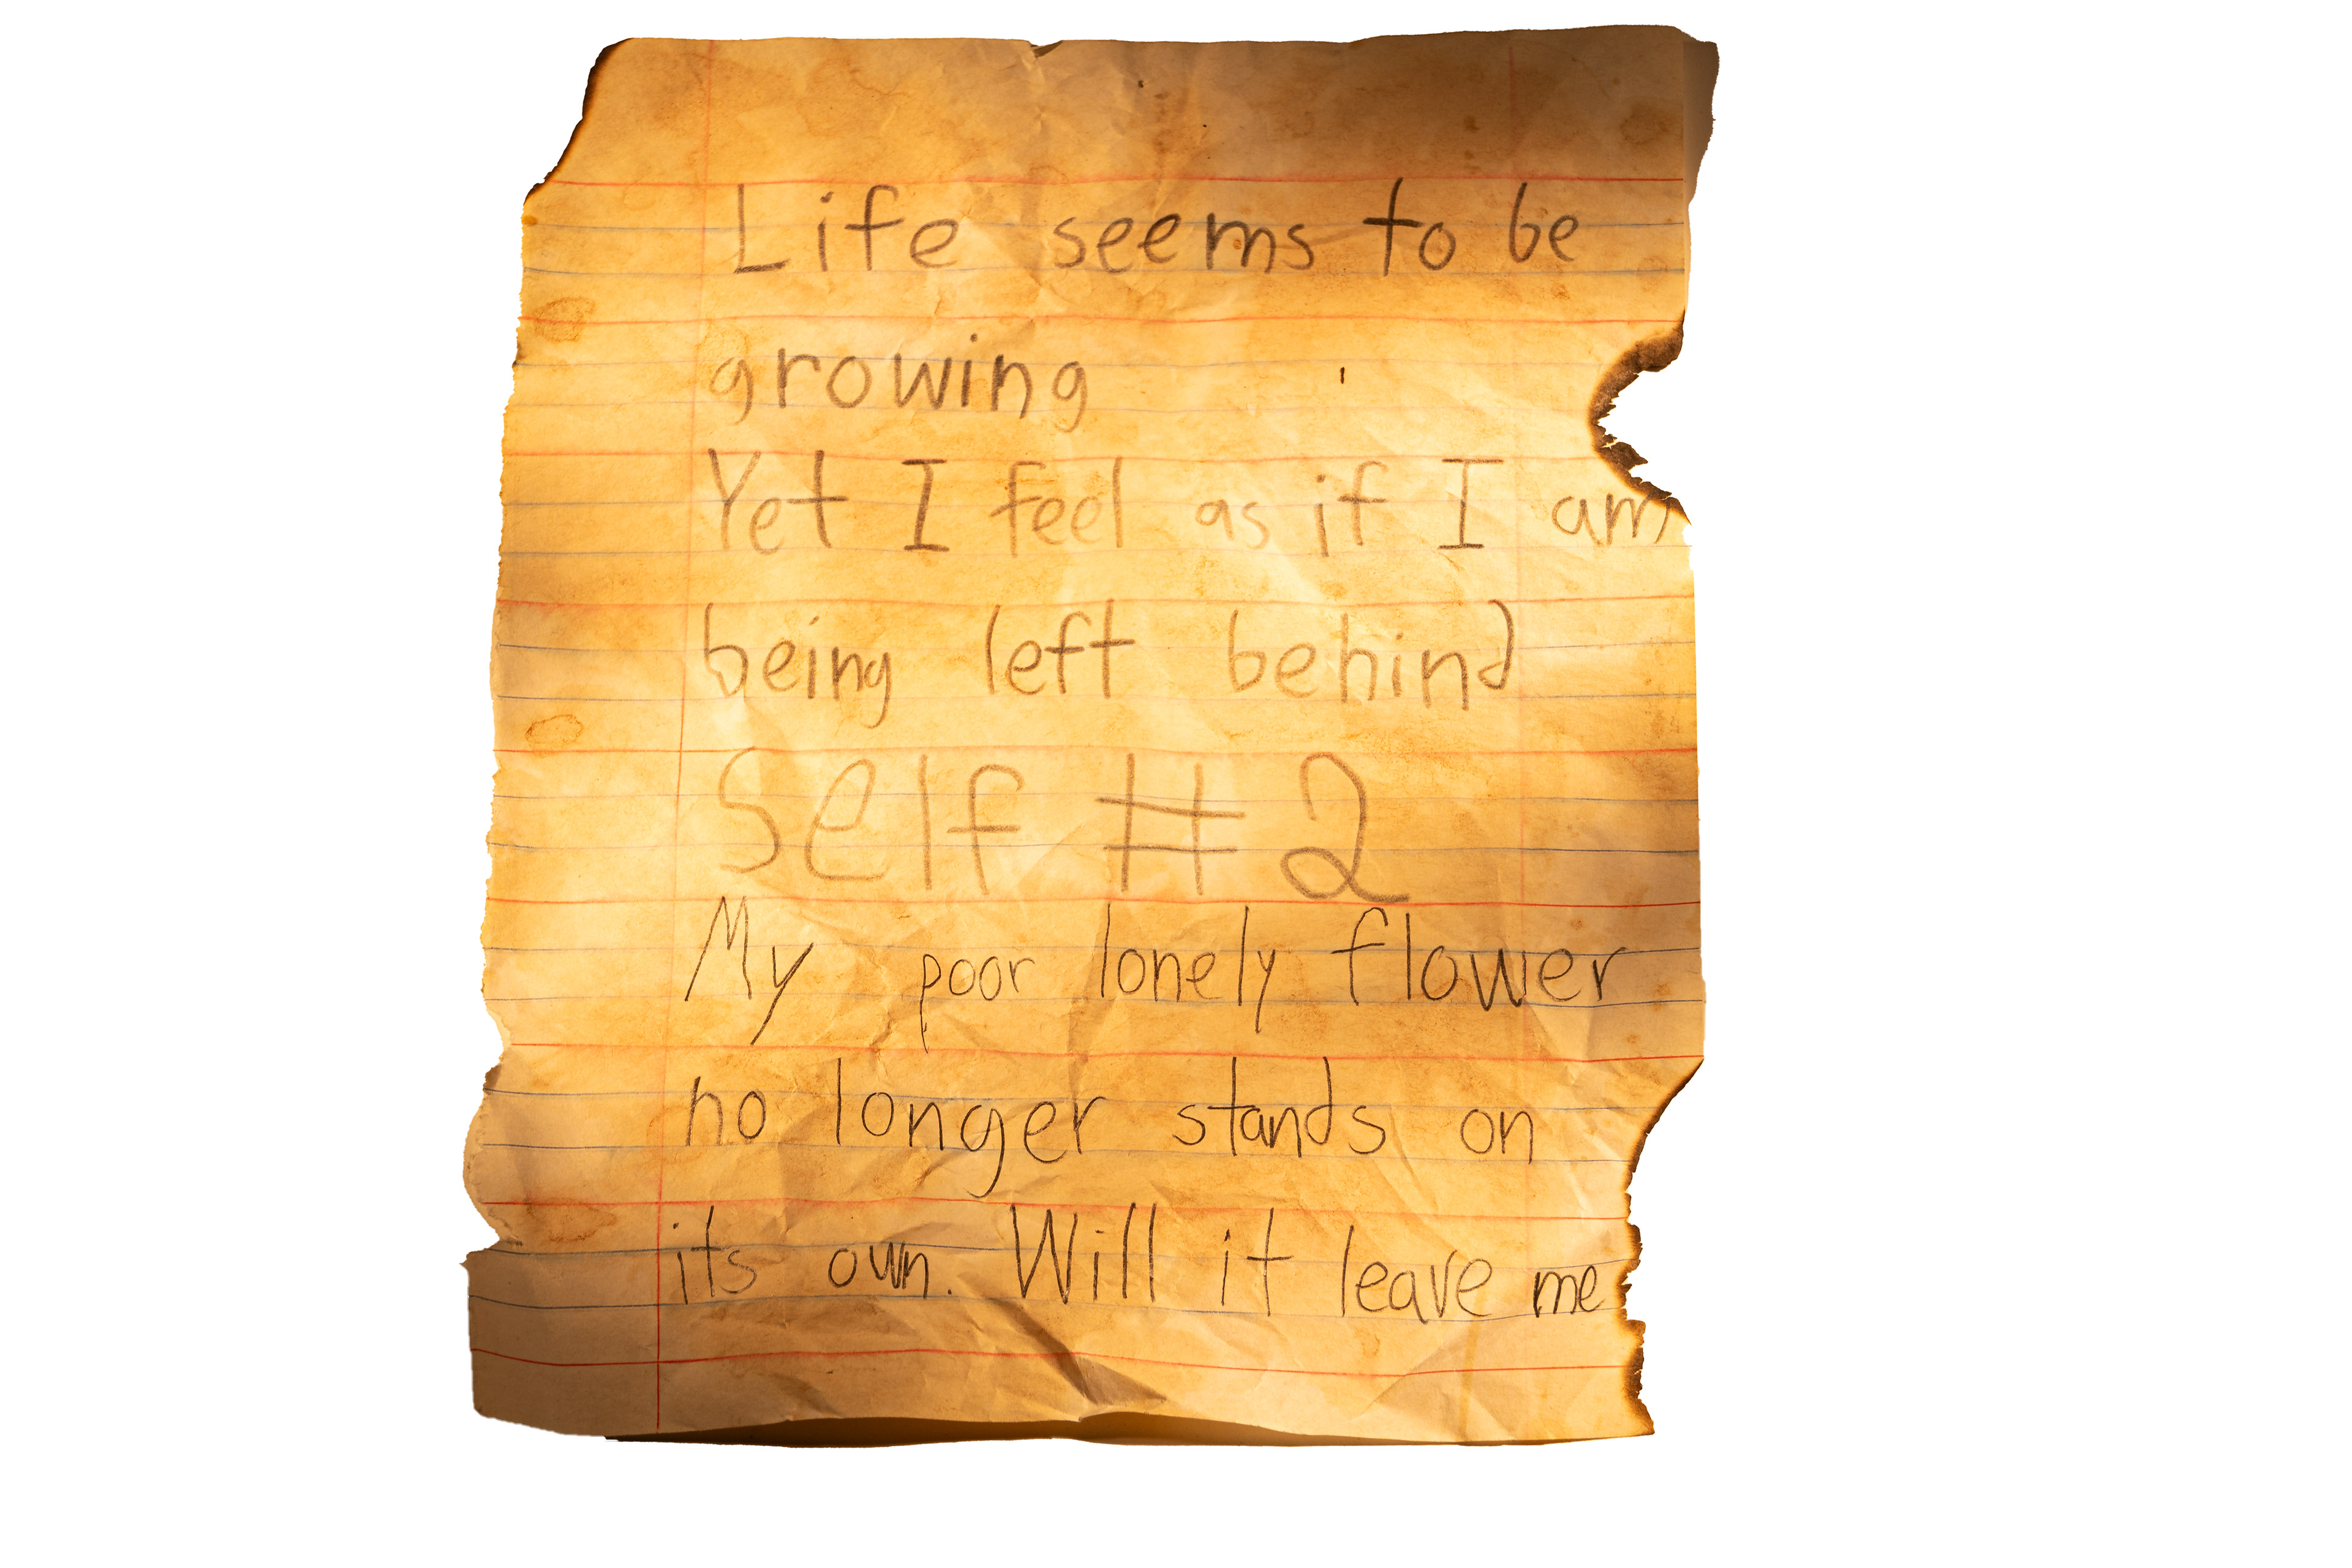 Life seems to be
growing
Yet I feel as if I am
being left behind
Self #2
My poor lonely flower
no longer stands on
its own. Will it leave me